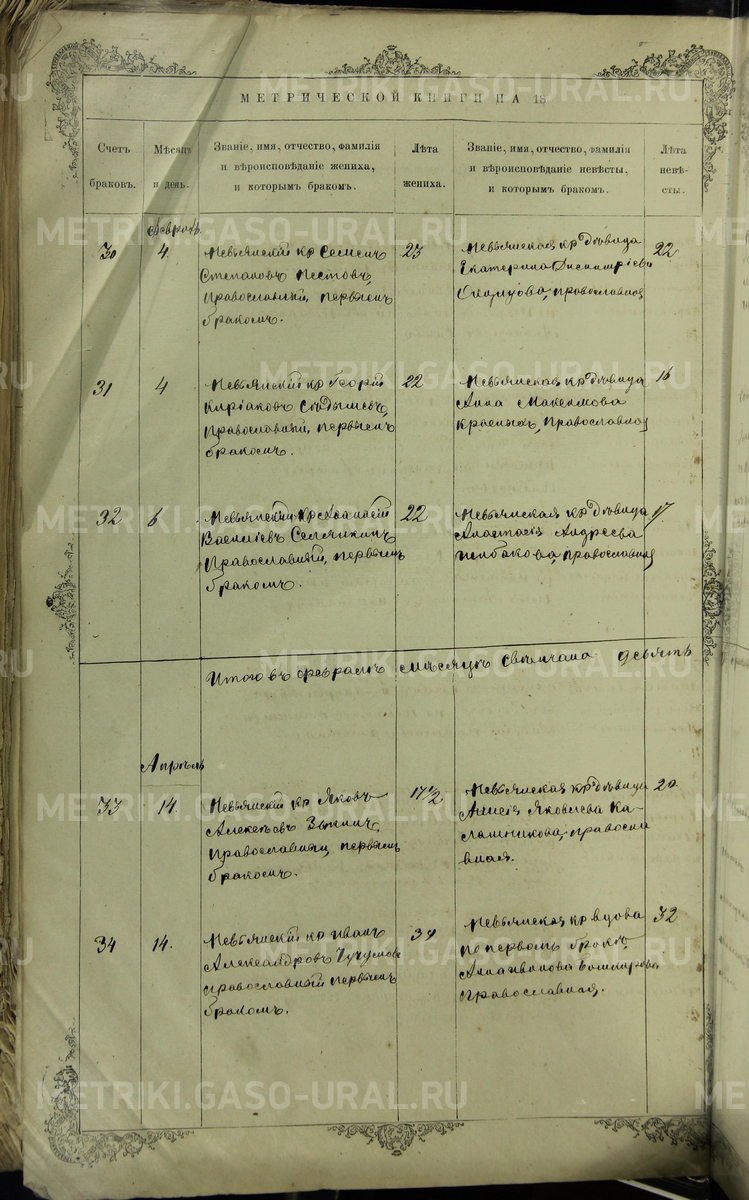 МЕТРИЧЕСКОЙ КНИГИ НА 18
Счетъ браковъ.
Мѣсяцъ и день.
Званіе, имя, отчество, фамилія и вѣроисповѣданіе жениха, и которымъ бракомъ.
Лѣта жениха.
Званіе, имя, отчество, фамилія и вѣроисповѣданіе невѣсты, и которымъ бракомъ.
Лѣта невѣсты.
30
4
Невьянскій кр Семенъ
Степановъ Пестовъ,
Православный, первымъ
бракомъ.
23
Невьянская кр дѣвица
Екатерина
православная
22
31
4
Невьянскій кр Георгій
Киріаковъ
Православный, первымъ
бракомъ.
22
Невьянская кр дѣвица
Анна Максимова
Красныхъ, Православная
16
32
6
Невьянскій кр
Василіевъ
Православный, первымъ
бракомъ.
22
Невьянская кр дѣвица
Анастасія Андреева
православная
17
Итого въ февралѣ мѣсяцѣ свѣнчано девять
Апрѣль
33
14.
Невьянскій кр Яковъ
Алексѣевъ
Православный первымъ
бракомъ.
17 1/2
Невьянская кр дѣвица
Яковлева Ка-
лашникова, правосла
вная.
20
34
14.
Невьянскій кр Иванъ
Александровъ
православный первымъ
бракомъ.
34
Невьянская кр вдова
по первомъ бракѣ,
Анна Иванова Башкирова
Православная.
32
METRIKI.GASO-URAL.RU